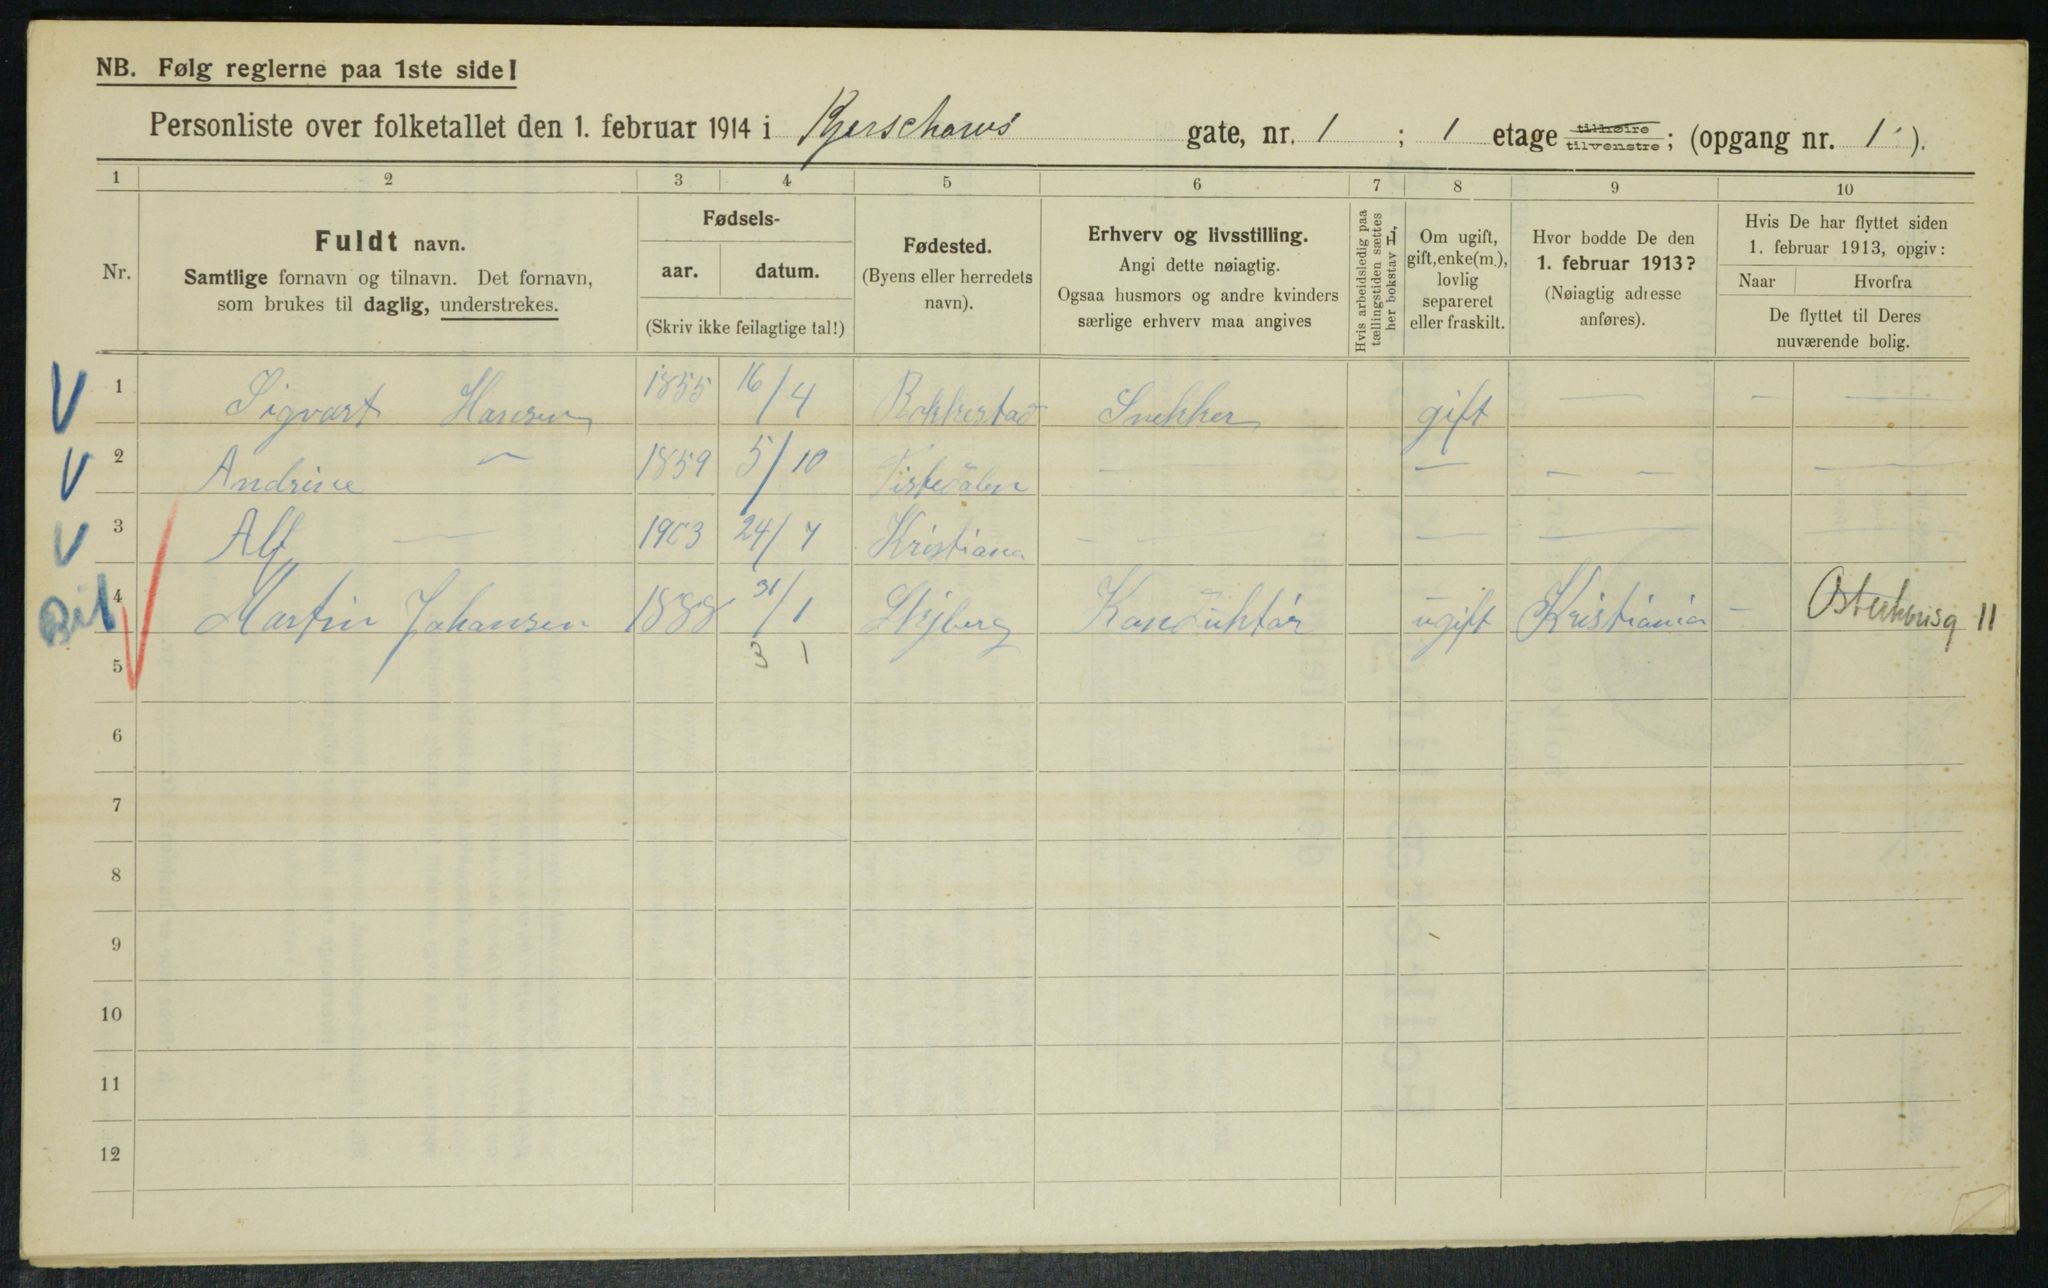 NB. Følg reglerne paa 1ste side!
Personliste over folketallet den 1. februar 1914 i Kjerschows gate, nr. 1 ; 1 etage tilhøire tilvenstre; (opgang nr. 1 ).
1 2 3 4 5 6 7 8 9 10
Nr.
Fuldt navn.
Samtlige fornavn og tilnavn. Det fornavn,
som brukes til daglig, understrekes.
Fødsels-
aar. datum.
(Skriv ikke feilagtige tal!)
Fødested.
(Byens eller herredets
navn).
Erhverv og livsstilling.
Angi dette nøiagtig.
Ogsaa husmors og andre kvinders
særlige erhverv maa angives
Hvis arbeidsledig paa
tællingstiden sættes
her bokstav L.
Om ugift,
gift, enke(m.),
lovlig
separeret
eller fraskilt.
Hvor bodde De den
1. februar 1913?
(Nøiagtig adresse
anføres).
Hvis De har flyttet siden
1. februar 1913, opgiv:
Naar Hvorfra
De flyttet til Deres
nuværende bolig.
V 1 Sigvart Hansen 1855 16/4 Rakkestad Snekker gift — — —
V 2 Andrine — 1859 5/10 Tistedalen — — — — — —
V 3 Alf — 1903 24/7 Kristiana — — — — — —
4 Martin Johansen 1888 31/1 Konduktør ugift Kristiania — 11
5 3 1
6
7
8
9
10
11
12